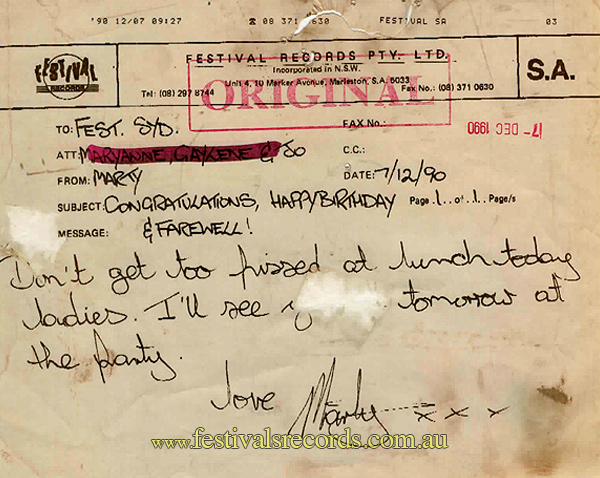 '90 12/07 09:27 ☎ 08 371 0630 FESTIVAL SA 03
FESTIVAL RECORDS PTY. LTD.
FESTIVAL
RECORDS
Incorporated in N.S.W.
Unit 4, 10 Marker Avenue, Marleston, S.A. 5033
Tel: (08) 297 8744 Fax No.: (08) 371 0630
S.A.
ORIGINAL
TO: FEST. SYD. FAX No.:
7- DEC 1990
ATT: MARYANNE, GAYLENE & JO C.C.:
FROM: MARTY DATE: 7/12/90
SUBJECT: CONGRATULATIONS, HAPPY BIRTHDAY Page 1 of 1 Page/s
MESSAGE: & FAREWELL!
Don't get too pissed at lunch today
ladies. I'll see tomorrow at
the party.
love Marty x x x
www.festivalsrecords.com.au